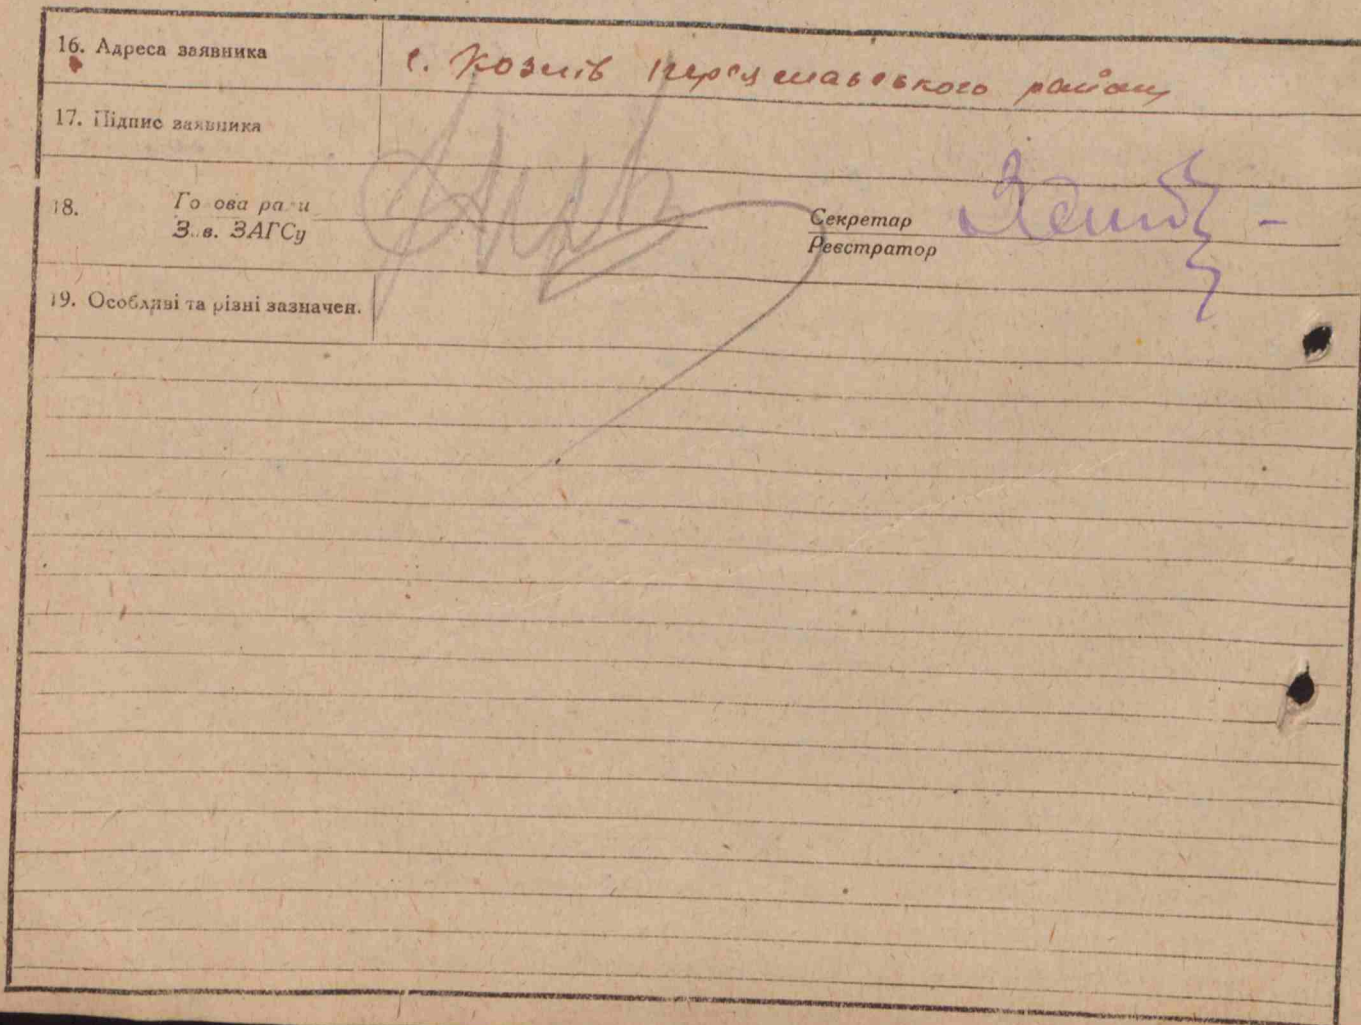 16. Адреса заявника
с. Козлів Переяславського району
17. Підпис заявника
18. Голова ради
Зав. ЗАГСу
Секретар
Реєстратор
19. Особливі та різні зазначен.